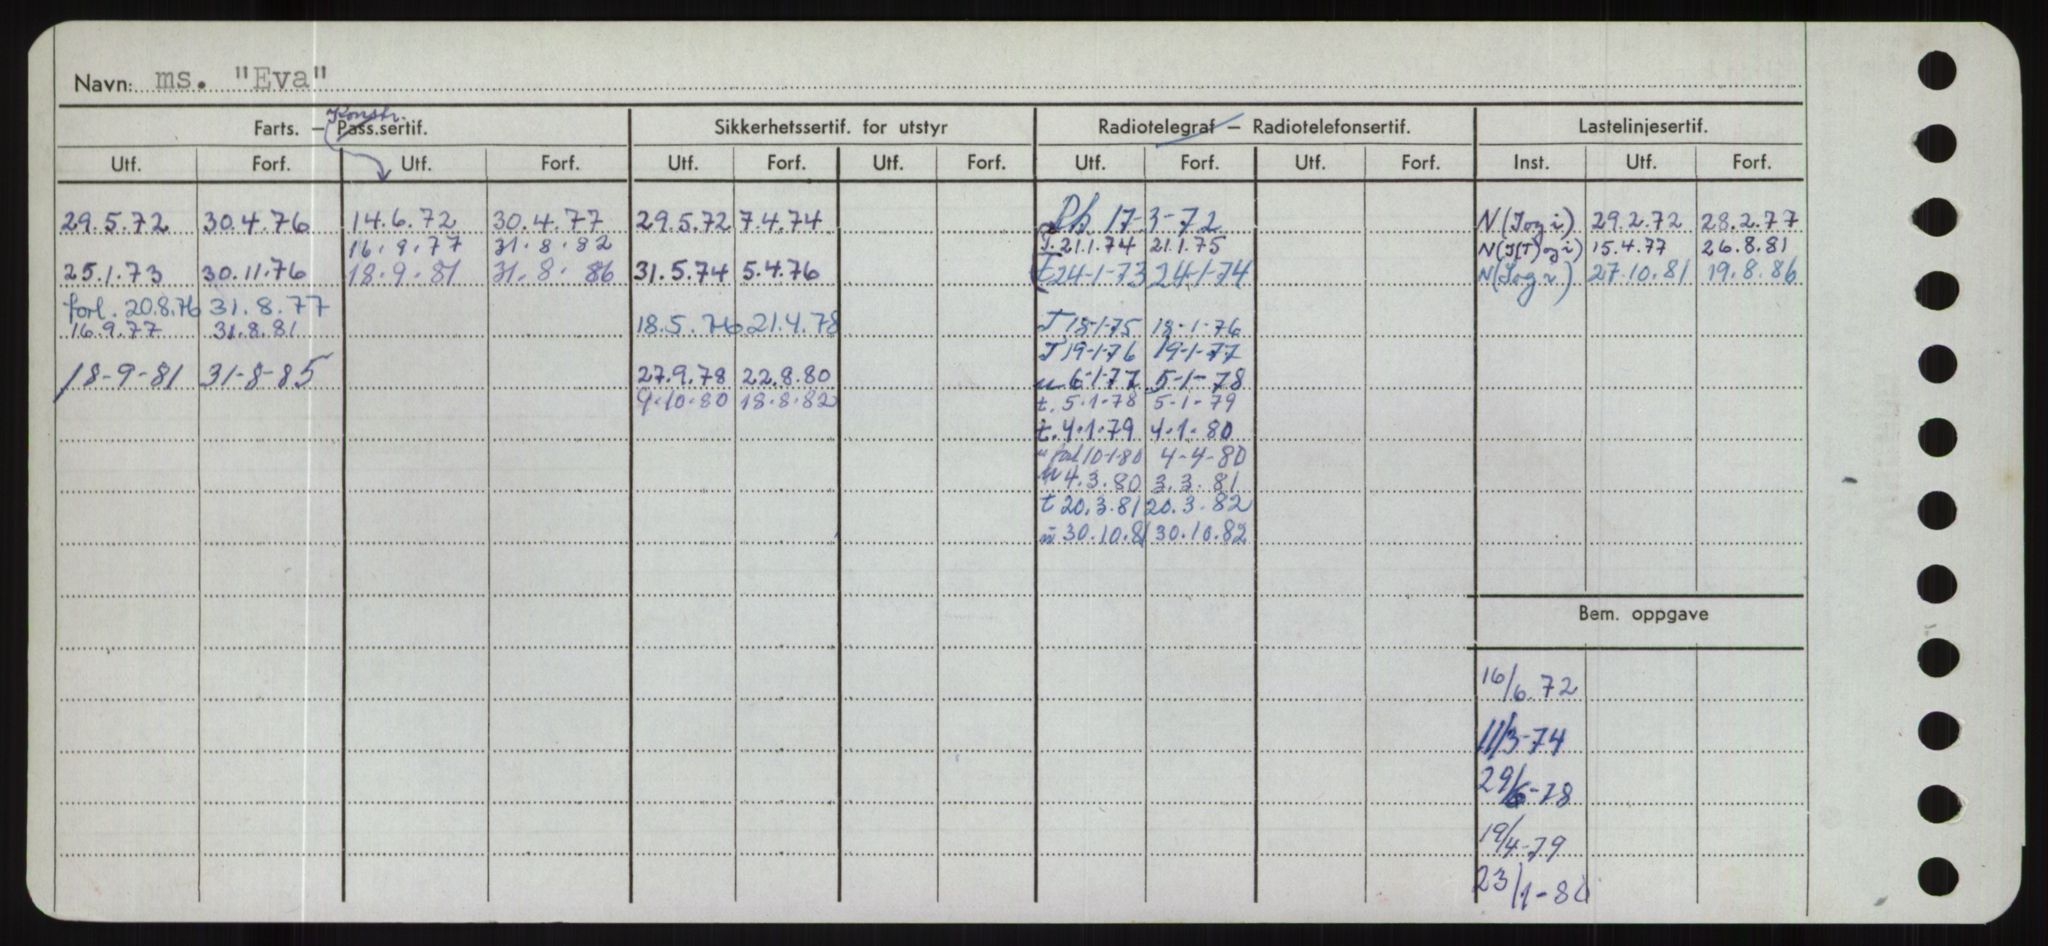 Navn: ms. "Eva"
Konstr.
Farts. – Pass.sertif. Sikkerhetssertif. for utstyr Radiotelegraf – Radiotelefonsertif. Lastelinjesertif.
Utf. Forf. Utf. Forf. Utf. Forf. Utf. Forf. Utf. Forf. Utf. Forf. Inst. Utf. Forf.
29.5.72 30.4.76 14.6.72 30.4.77 29.5.72 7.4.74 Ph 17-3-72 N(Sog i) 29.2.72 28.2.77
16.9.77 31.8.82 T.21.1.74 21.1.75 N(S(T)og i) 15.4.77 26.8.81
25.1.73 30.11.76 18.9.81 31.8.86 31.5.74 5.4.76 t 24-1-73 24-1-74 N(Sog i) 27.10.81 19.8.86
forl. 20.8.76 31.8.77
16.9.77 31.8.81 18.5.76 21.4.78 T 18-1-75 18-1-76
T 19-1-76 19-1-77
18-9-81 31-8-85 27.9.78 22.8.80 u 6-1-77 5-1-78
9.10.80 18.8.82 t. 5.1.78 5-1-79
t. 4.1.79 4.1.80
" forl 10-1-80 4-4-80
u 4.3.80 3.3.81
t 20.3.81 20.3.82
u 30.10.81 30.10.82
Bem. oppgave
16/6.72
11/3-74
29/6-78
19/4-79
23/1-80